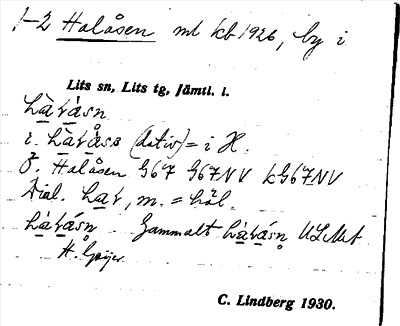 1-2 Halåsen ml kb 1926, by i
Lits sn, Lits tg, Jämtl. l.
hàɽásn
i. hàɽåss (dativ) = i H.
Ö. Halåsen G67 G67NV kG67NV
Dial. haɽ, m. = häl.
hàɽásn Gammalt hàɽásn ULMA
H. Geijer
C. Lindberg 1930.